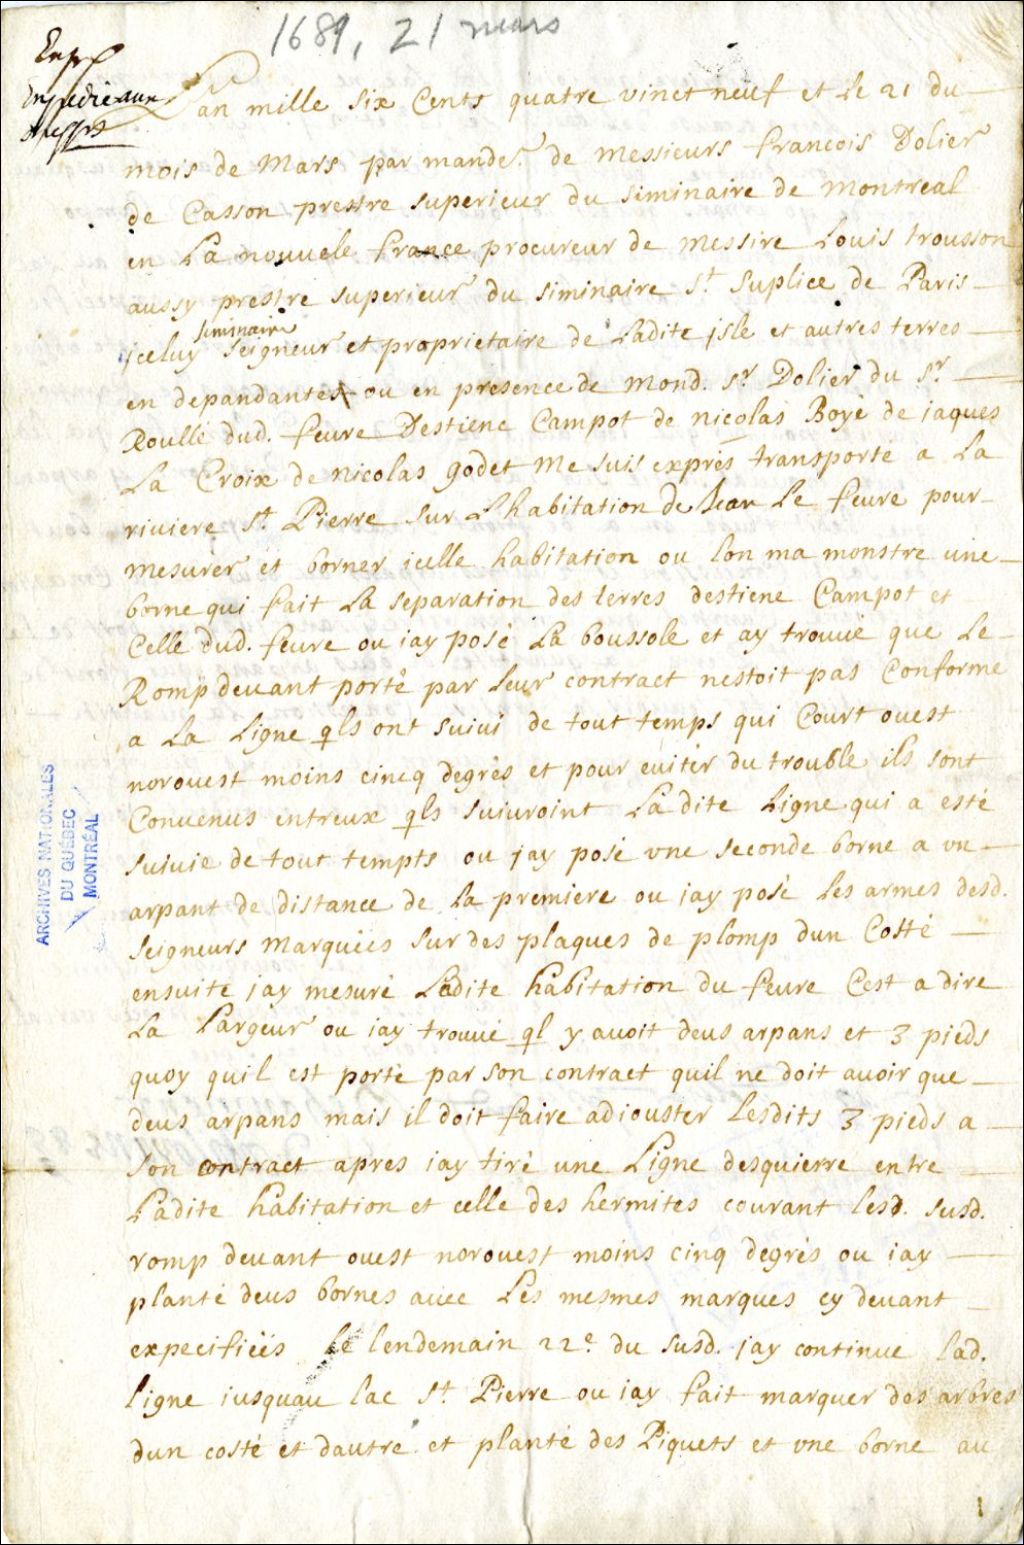 1689, 21 mars
Lan mille six Cents quatre vinct neuf et Le 21 du
mois de Mars par mande.t de Messieurs francois Dolier
de Casson prestre superieur du siminaire de Montreal
en La nouuele france procureur de Messire Louis trousson
aussy prestre superieur du siminaire St Suplice de Paris
siminaire
jceluy seigneur et proprietaire de Ladite jsle et autres terres
en dependantes ou en presence de Mond. sr Dolier du sr
Roullé dud. feure Destiene Campot de nicolas Boyè de jaques
La Croix de nicolas godet Me suis exprès transporté a La
riuiere St Pierre sur L habitation de Jean Le feure pour
mesurer et borner icelle habitation ou lon ma monstré une
borne qui fait La separation des terres destiene Campot et
Celle dud. feure ou iay posé La boussole et ay trouué que Le
Romp deuant porté par leur contract nestoit pas Conforme
a La Ligne qls ont suiui de tout temps qui Court ouest
norouest moins cincq degrés et pour euiter du trouble ils sont
Conuenus entreux qls suiuroint La dite Ligne qui a esté
suiuie de tout tempts ou jay posé vne seconde borne a vn
arpant de distance de la premiere ou iay posé les armes desd.
seigneurs Marquées sur des plaques de plomp dun Costé
ensuite jay mesuré Ladite habitation du feure Cest a dire
La Largeur ou iay trouué ql y auoit deus arpans et 3 pieds
quoy quil est porté par son contract quil ne doit auoir que
deus arpans mais il doit faire adiouster Lesdits 3 pieds a
son contract apres iay tiré une Ligne desquierre entre
Ladite habitation et celle des hermites courant lesd. susd.
romp deuant ouest norouest moins cinq degrés ou iay
planté deus bornes auec Les mesmes marques cy deuant
expecifiées Le lendemain 22e du susd. jay continue lad.
ligne iusquau lac St Pierre ou iay fait marquer des arbres
dun costé et dautre et planté des Piquets et vne borne au
ARCHIVES NATIONALES
DU QUÉBEC
MONTRÉAL
1